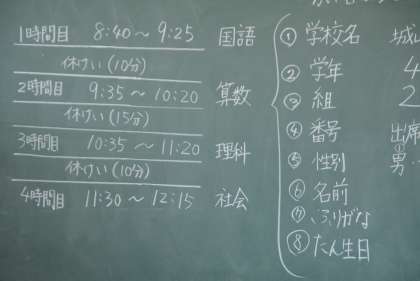 1時間目 8:40～9:25 国語
休けい(10分)
2時間目 9:35～10:20 算数
休けい(15分)
3時間目 10:35～11:20 理科
休けい(10分)
4時間目 11:30～12:15 社会
① 学校名 城山
② 学年 4
③ 組 2
④ 番号 出席
⑤ 性別 男・
⑥ 名前
⑦ ふりがな
⑧ たん生日